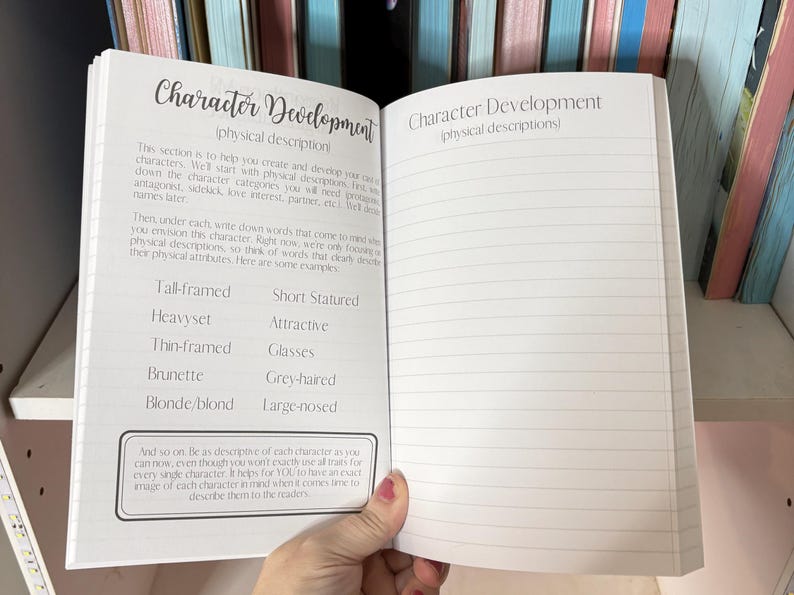 Character Development
(physical description)
This section is to help you create and develop your cast of
characters. We'll start with physical descriptions. First, write
down the character categories you will need (protagonist,
antagonist, sidekick, love interest, partner, etc.). We'll decide
names later.
Then, under each, write down words that come to mind when
you envision this character. Right now, we're only focusing on
physical descriptions, so think of words that clearly describe
their physical attributes. Here are some examples:
Tall-framed Short Statured
Heavyset Attractive
Thin-framed Glasses
Brunette Grey-haired
Blonde/blond Large-nosed
And so on. Be as descriptive of each character as you
can now, even though you won't exactly use all traits for
every single character. It helps for YOU to have an exact
image of each character in mind when it comes time to
describe them to the readers.
Character Development
(physical descriptions)